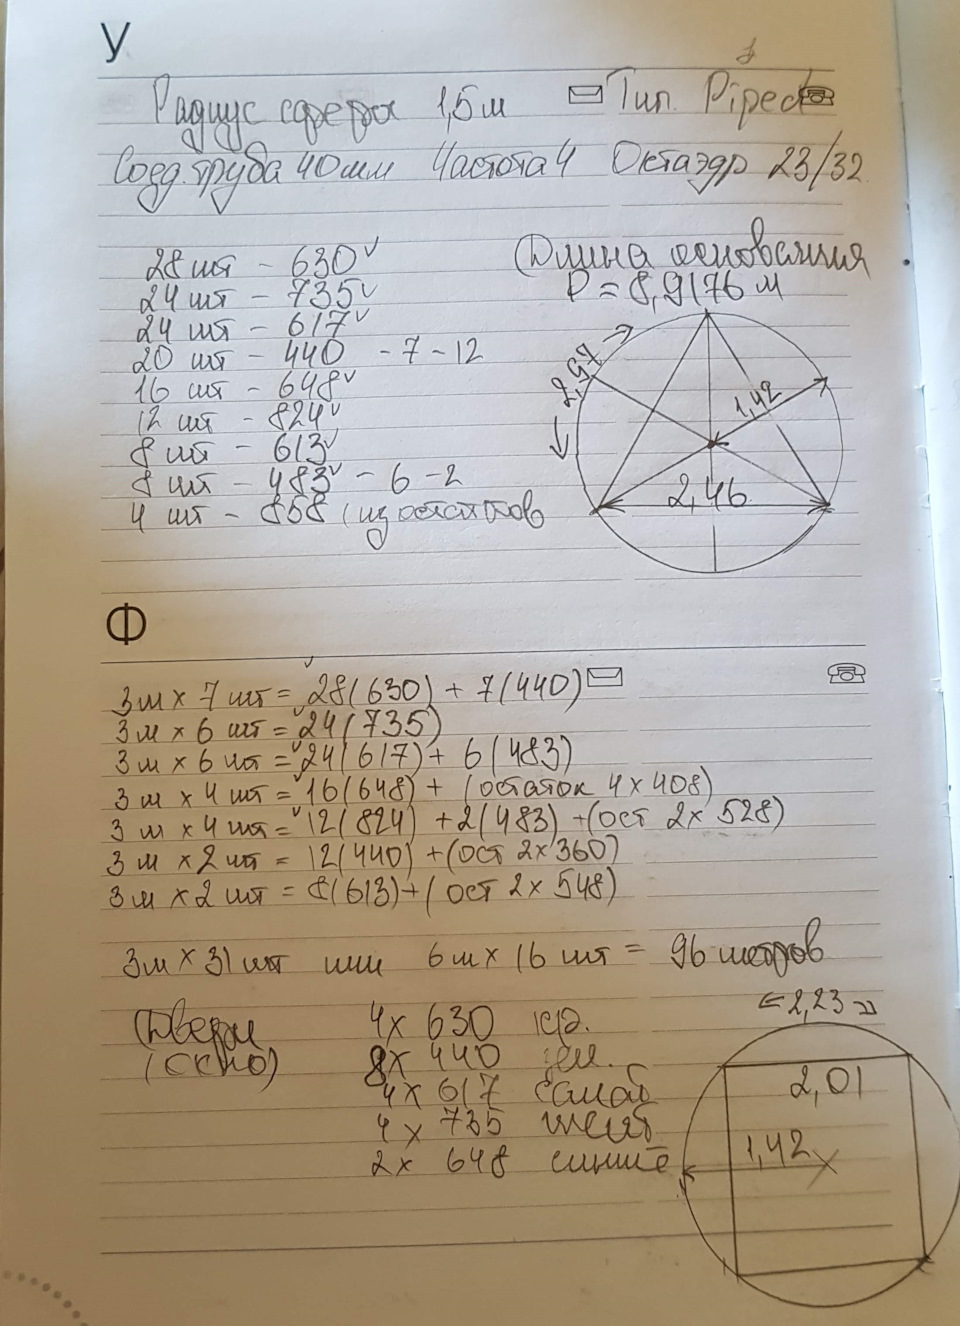 У
Радиус сферы 1,5 м Тип Piped
Соед. труба 40 мм Частота 4 Октаэдр 23/32
28 шт - 630 ✓
24 шт - 735 ✓
24 шт - 617 ✓
20 шт - 440 - 7 - 12
16 шт - 648 ✓
12 шт - 824 ✓
8 шт - 613 ✓
8 шт - 483 ✓ - 6 - 2
4 шт - 858 (из остатков
Длина основания
P = 8,9176 м
2,97
1,42
2,46
Ф
3м x 7 шт = 28(630) + 7(440)
3м x 6 шт = 24(735)
3м x 6 шт = 24(617) + 6(483)
3м x 4 шт = 16(648) + (остаток 4 x 408)
3м x 4 шт = 12(824) + 2(483) + (ост 2x 528)
3м x 2 шт = 12(440) + (ост 2x360)
3м x 2 шт = 8(613) + (ост 2 x 548)
3м x 31 шт или 6м x 16 шт = 96 метров
Двери
(окно)
4x 630 кр.
8x 440 зел.
4x 617
4x 735
2x 648 синие
2,23
2,01
1,42